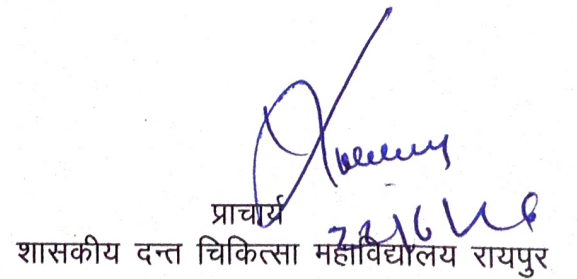 प्राचार्य
शासकीय दन्त चिकित्सा महाविद्यालय रायपुर